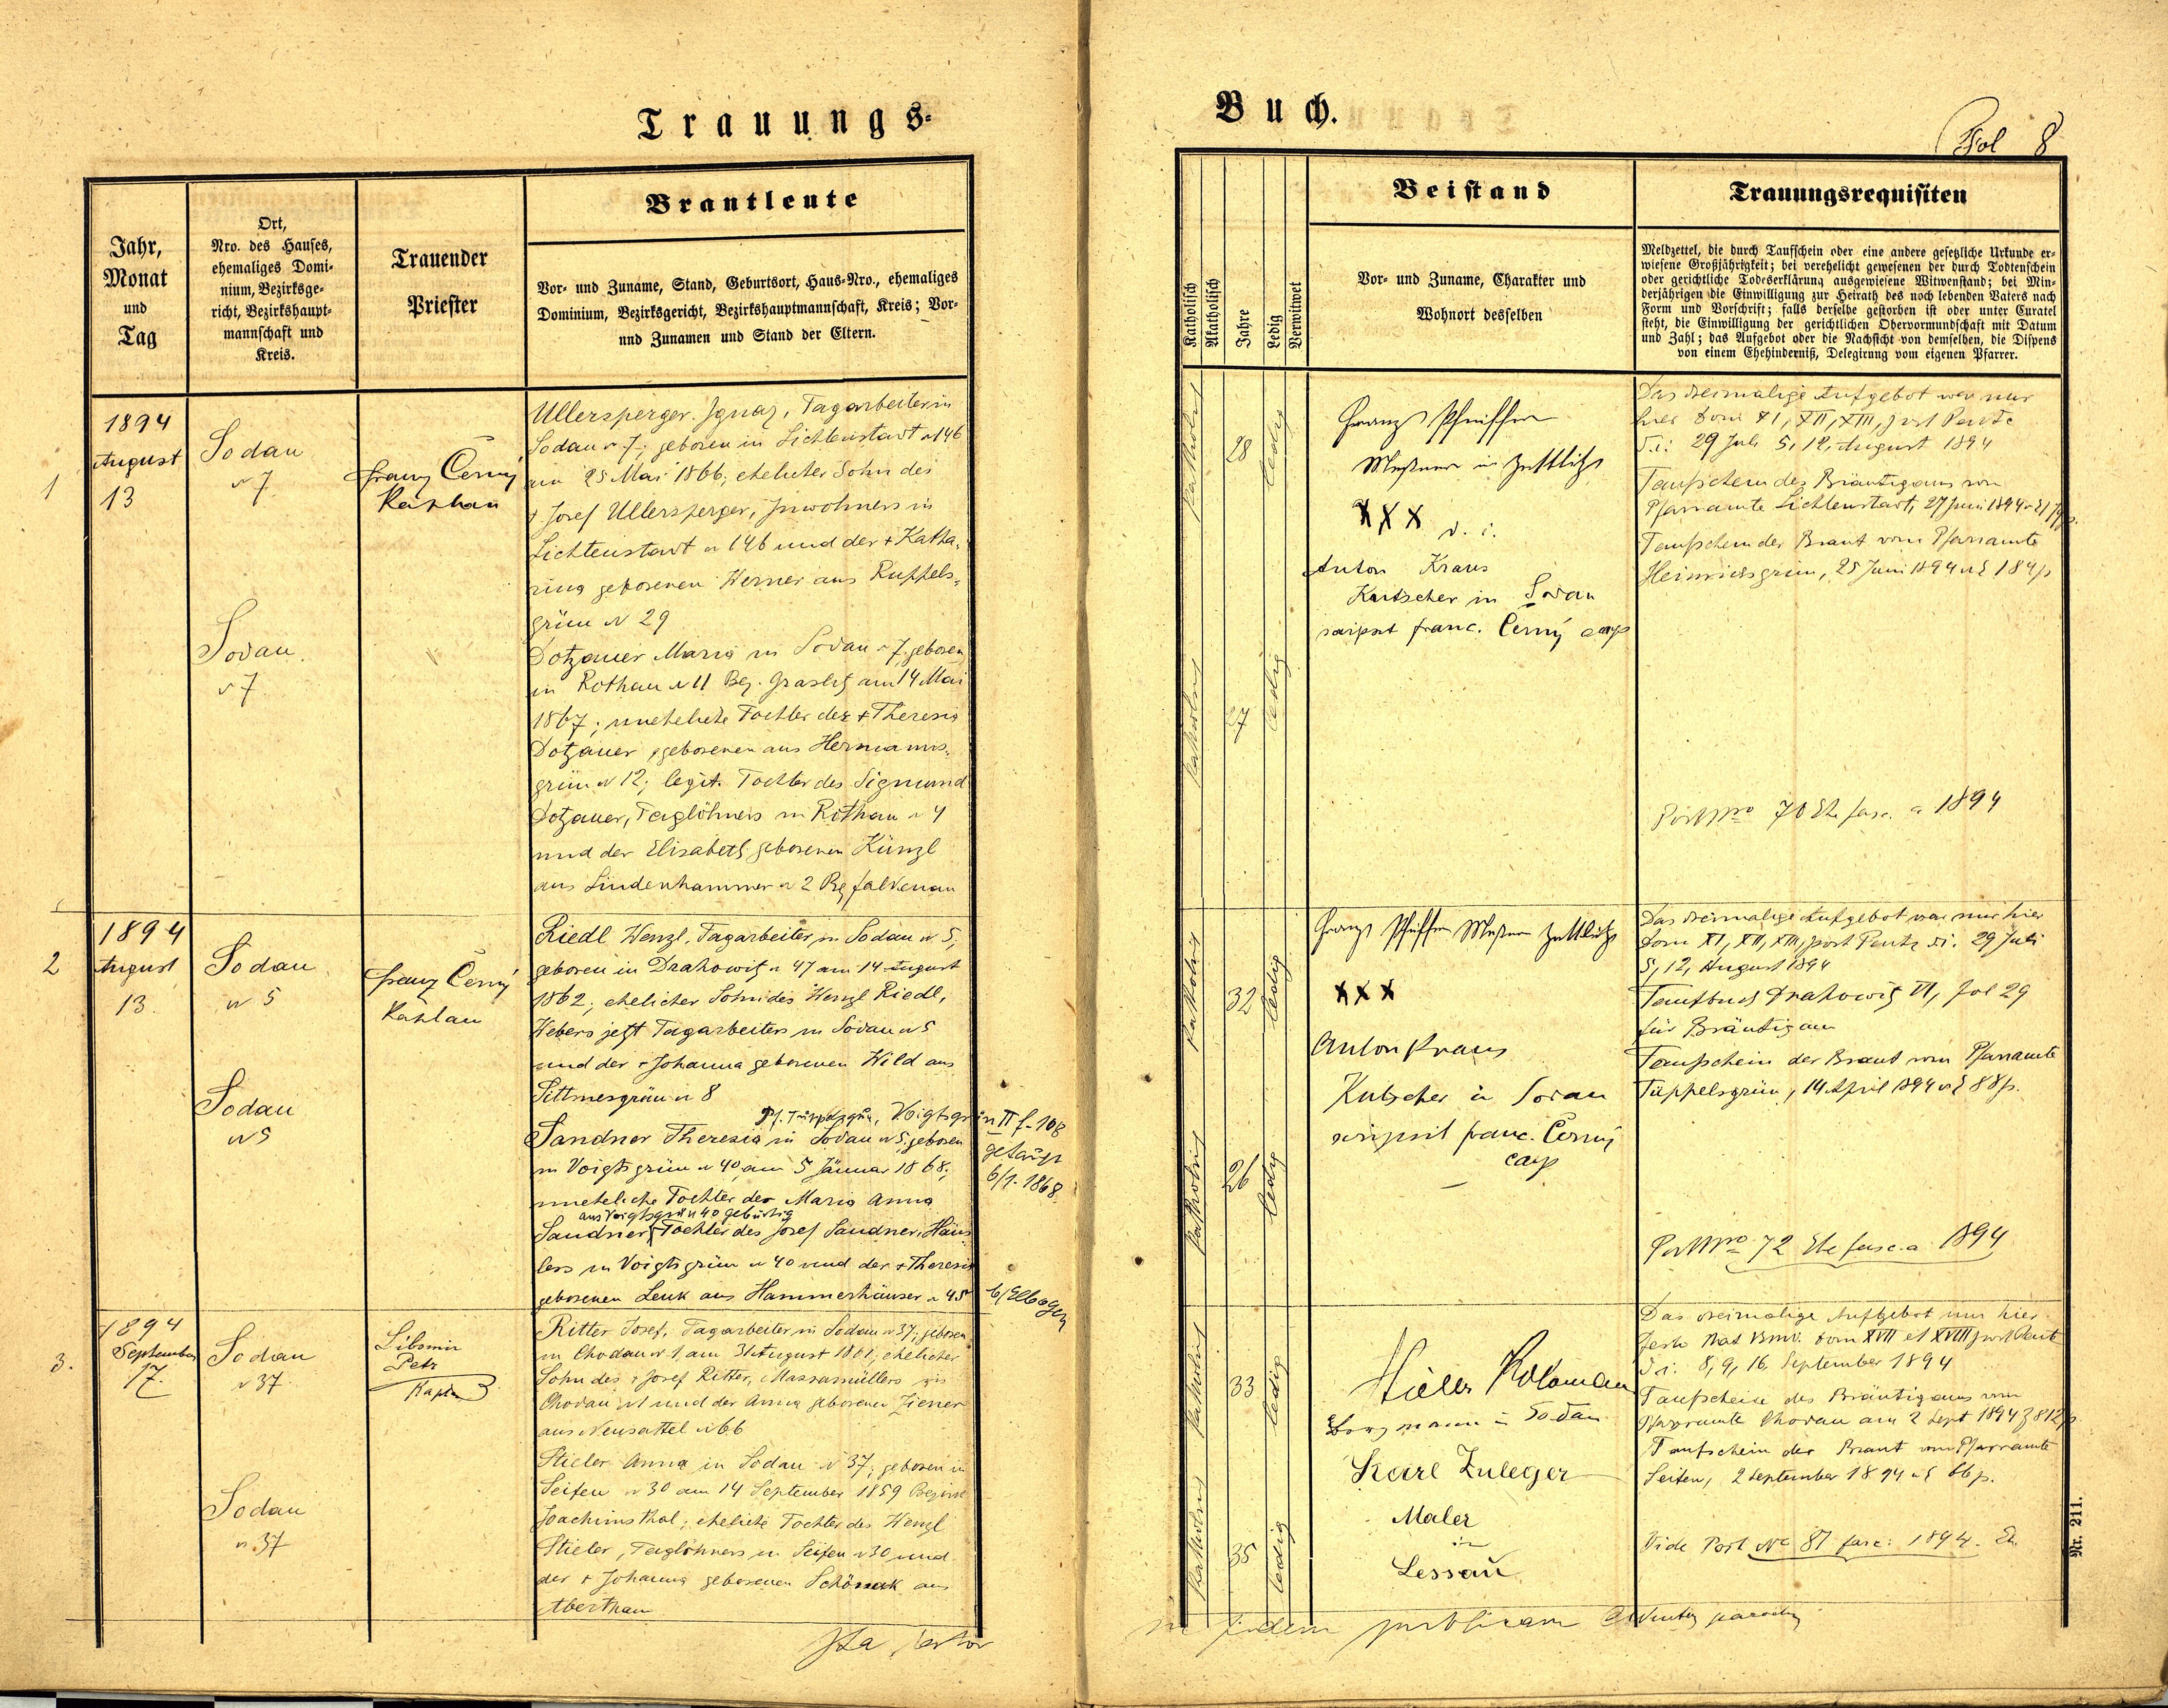 Trauungs-
Jahr,
Monat
und
Tag
Ort,
Nro. des Hauses,
ehemaliges Domi-
nium, Bezirksge-
richt, Bezirkshaupt-
mannschaft und
Kreis.
Trauender
Priester
Brautleute
Vor- und Zuname, Stand, Geburtsort, Haus-Nro., ehemaliges
Dominium, Bezirksgericht, Bezirkshauptmannschaft, Kreis; Vor-
und Zunamen und Stand der Eltern.
1
1894
August
13
Sodau
N 7
Franz Černý
Kaplan
Ullersperger Ignaz, Tagarbeiter in
Sodau N 7; geboren in Lichtenstadt N 146
am 25 Mai 1866; ehelicher Sohn des
† Josef Ullersperger, Inwohners in
Lichtenstadt N 146 und der † Katha-
rina geborenen Werner aus Ruppels-
grün N 29
Sodau
N 7
Dotzauer Maria in Sodau N 7, geboren
in Rothau N 11 Bez. Graslitz am 14 Mai
1867; uneheliche Tochter der † Theresia
Dotzauer, geborenen aus Hermanns-
grün N 12; legit. Tochter des Sigmund
Dotzauer, Taglöhners in Rothau N 4
und der Elisabeth geborenen Künzl
aus Lindenhammer N 2 Bez Falkenau
2
1894
August
13.
Sodau
N 5
Franz Černý
Kaplan
Riedl Wenzl, Tagarbeiter in Sodau N 5,
geboren in Drahowitz N 47 am 14 August
1862; ehelicher Sohn des Wenzl Riedl,
Webers jetzt Tagarbeiters in Sodau N 5
und der † Johanna geborenen Wild aus
Sittmesgrün N 8
Pf. Tüppelsgrün, Voigtsgrün II f. 108
getauft
6/1. 1868
Sodau
N 5
Sandner Theresia in Sodau N 5, geboren
in Voigtsgrün N 40, am 5 Jänner 1868;
uneheliche Tochter der Maria Anna
aus Voigtsgrün N 40 gebürtig
Sandner, Tochter des Josef Sandner, Häus-
lers in Voigtsgrün N 40 und der † Theresia
geborenen Lenk aus Hammerhäuser N 45
b/Elbogen
3.
1894
September
17.
Sodau
N 37
Petr
Kaplan
Ritter Josef, Tagarbeiter in Sodau N 37; geboren
in Chodau N 1, am 31 August 1861; ehelicher
Sohn des † Josef Ritter, Massamüllers in
Chodau N 1 und der Anna geborenen Ziener
aus Neusattel N 66
Sodau
N 37
Stieler Anna in Sodau N 37; geboren in
Seifen N 30 am 14 September 1859 Bezirk
Joachimsthal; eheliche Tochter des Wenzl
Stieler, Taglöhners in Seifen N 30 und
der † Johanna geborenen Schönek aus
Abertham
Ita testor
Buch.
Fol 8
Katholisch
Akatholisch
Jahre
Ledig
Verwitwet
Beistand
Vor- und Zuname, Charakter und
Wohnort desselben
Trauungsrequisiten
Meldzettel, die durch Taufschein oder eine andere gesetzliche Urkunde er-
wiesene Großjährigkeit; bei verehelicht gewesenen der durch Todtenschein
oder gerichtliche Todeserklärung ausgewiesene Witwenstand; bei Min-
derjährigen die Einwilligung zur Heirath des noch lebenden Vaters nach
Form und Vorschrift; falls derselbe gestorben ist oder unter Curatel
steht, die Einwilligung der gerichtlichen Obervormundschaft mit Datum
und Zahl; das Aufgebot oder die Nachsicht von demselben, die Dispens
von einem Ehehinderniß, Delegirung vom eigenen Pfarrer.
katholisch
28
ledig
Franz Pfeiffer
Meßner in Zettlitz
XXX d. i.
Anton Kraus
Kutscher in Sodau
scripsit franc. Černý cap
Das dreimalige Aufgebot war nur
hier Dom XI, XII, XIII, post Pente
d. i. 29 Juli 5, 12, August 1894
Taufschein des Bräutigams vom
Pfarramte Lichtenstadt, 27 Juni 1894
Taufschein der Braut vom Pfarramte
Heinrichsgrün, 25 Juni 1894 N E 184/p
katholisch
27
ledig
Port Nro 70 Eh fasc. a 1894
katholisch
32
ledig
Franz Pfeiffer Meßner Zettlitz
XXX
Anton Kraus
Kutscher in Sodau
scripsit franc. Černý
cap
Das dreimalige Aufgebot war nur hier
Dom XI, XII, XIII, post Pente d.i. 29 Juli
5, 12, August 1894
Taufbuch Drahowitz VI, Fol 29
für Bräutigam
Taufschein der Braut vom Pfarramte
Tüppelsgrün, 14 April 1894 N E 88/p.
katholisch
26
ledig
Port Nro 72 Ehe fasc. a 1894
katholisch
33
ledig
Koloman
Bergmann in Sodau
Karl Zuleger
Maler
in
Lessau
Das dreimalige Aufgebot nur hier
festo Nat BMV. Dom XVII et XVIII post Pent
d i: 8, 9, 16, September 1894
Taufschein des Bräutigams vom
Pfarramte Chodau am 2 Sept 1894 Z 812/p.
Taufschein der Braut vom Pfarramte
Seifen, 2 September 1894 N E 66 p.
katholisch
35
ledig
Vide Port No 81 fasc: 1894. Eh.
Nr. 211.
in fidem publicam